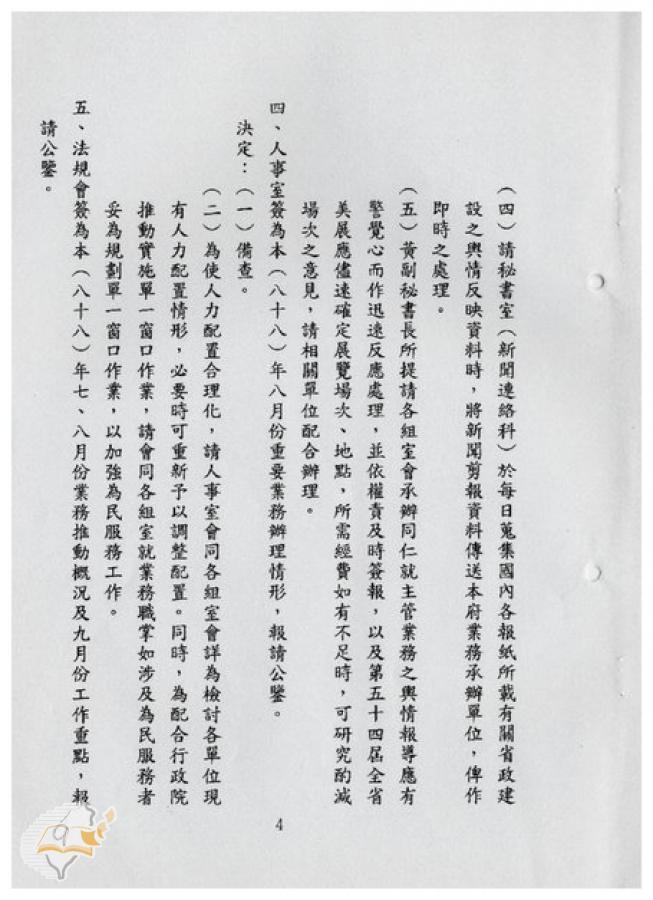 （四）請秘書室（新聞連絡科）於每日蒐集國內各報紙所載有關省政建
設之輿情反映資料時，將新聞剪報資料傳送本府業務承辦單位，俾作
即時之處理。
（五）黃副秘書長所提請各組室會承辦同仁就主管業務之輿情報導應有
警覺心而作迅速反應處理，並依權責及時簽報，以及第五十四屆全省
美展應儘速確定展覽場次、地點，所需經費如有不足時，可研究酌減
場次之意見，請相關單位配合辦理。
四、人事室簽為本（八十八）年八月份重要業務辦理情形，報請公鑒。
決定：（一）備查。
（二）為使人力配置合理化，請人事室會同各組室會詳為檢討各單位現
有人力配置情形，必要時可重新予以調整配置。同時，為配合行政院
推動實施單一窗口作業，請會同各組室就業務職掌如涉及為民服務者
妥為規劃單一窗口作業，以加強為民服務工作。
五、法規會簽為本（八十八）年七、八月份業務推動概況及九月份工作重點，報
請公鑒。
4